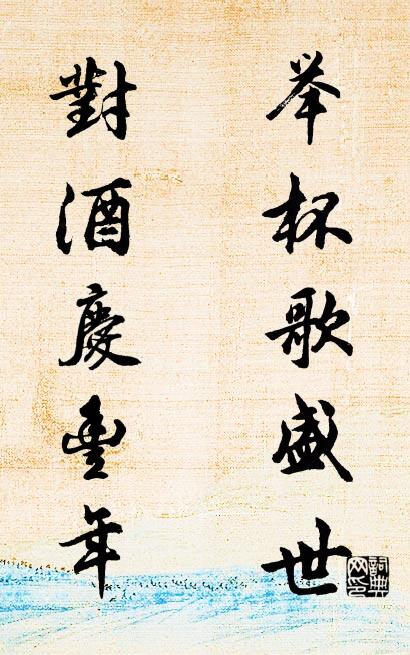 举杯歌盛世
對酒慶豐年
詞典网印